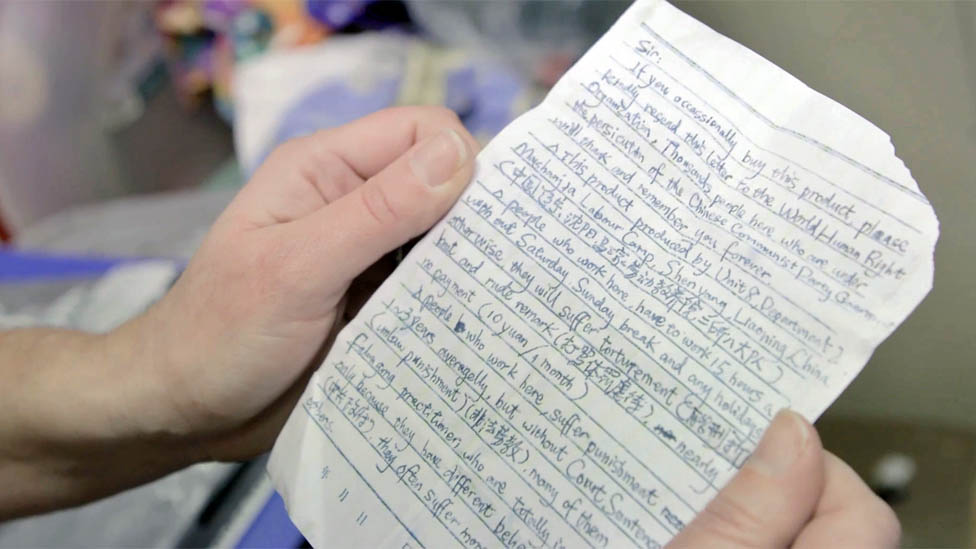 Sir:
If you occassionally buy this product, please
kindly resend this letter to the World Human Right
Organization. Thousands people here who are under
the persicuton of the Chinese Communist Party Government
will thank and remember you forever.
△ This product produced by Unit 8, Department 2
Machanjia Labour Camp, Shen yang, Liaoning, China
(中国,辽宁,沈阳,马三家劳动教养院二所八大队)
△ people who work here, have to work 15 hours a
with out Saturday, Sunday break and any holidays
other wise they will suffer torturement (酷刑折磨),
but and rude remark (打骂体罚虐待), nearly
no payment (10 yuan / 1 month)
△ people who work here, suffer punishment
1~3 years averagelly, but without Court Sentence
(unlaw punishment) (非法劳教), many of them
Falun gong practitioner, who are totally in
only because they have different believe
they often suffer more
others.
" " "